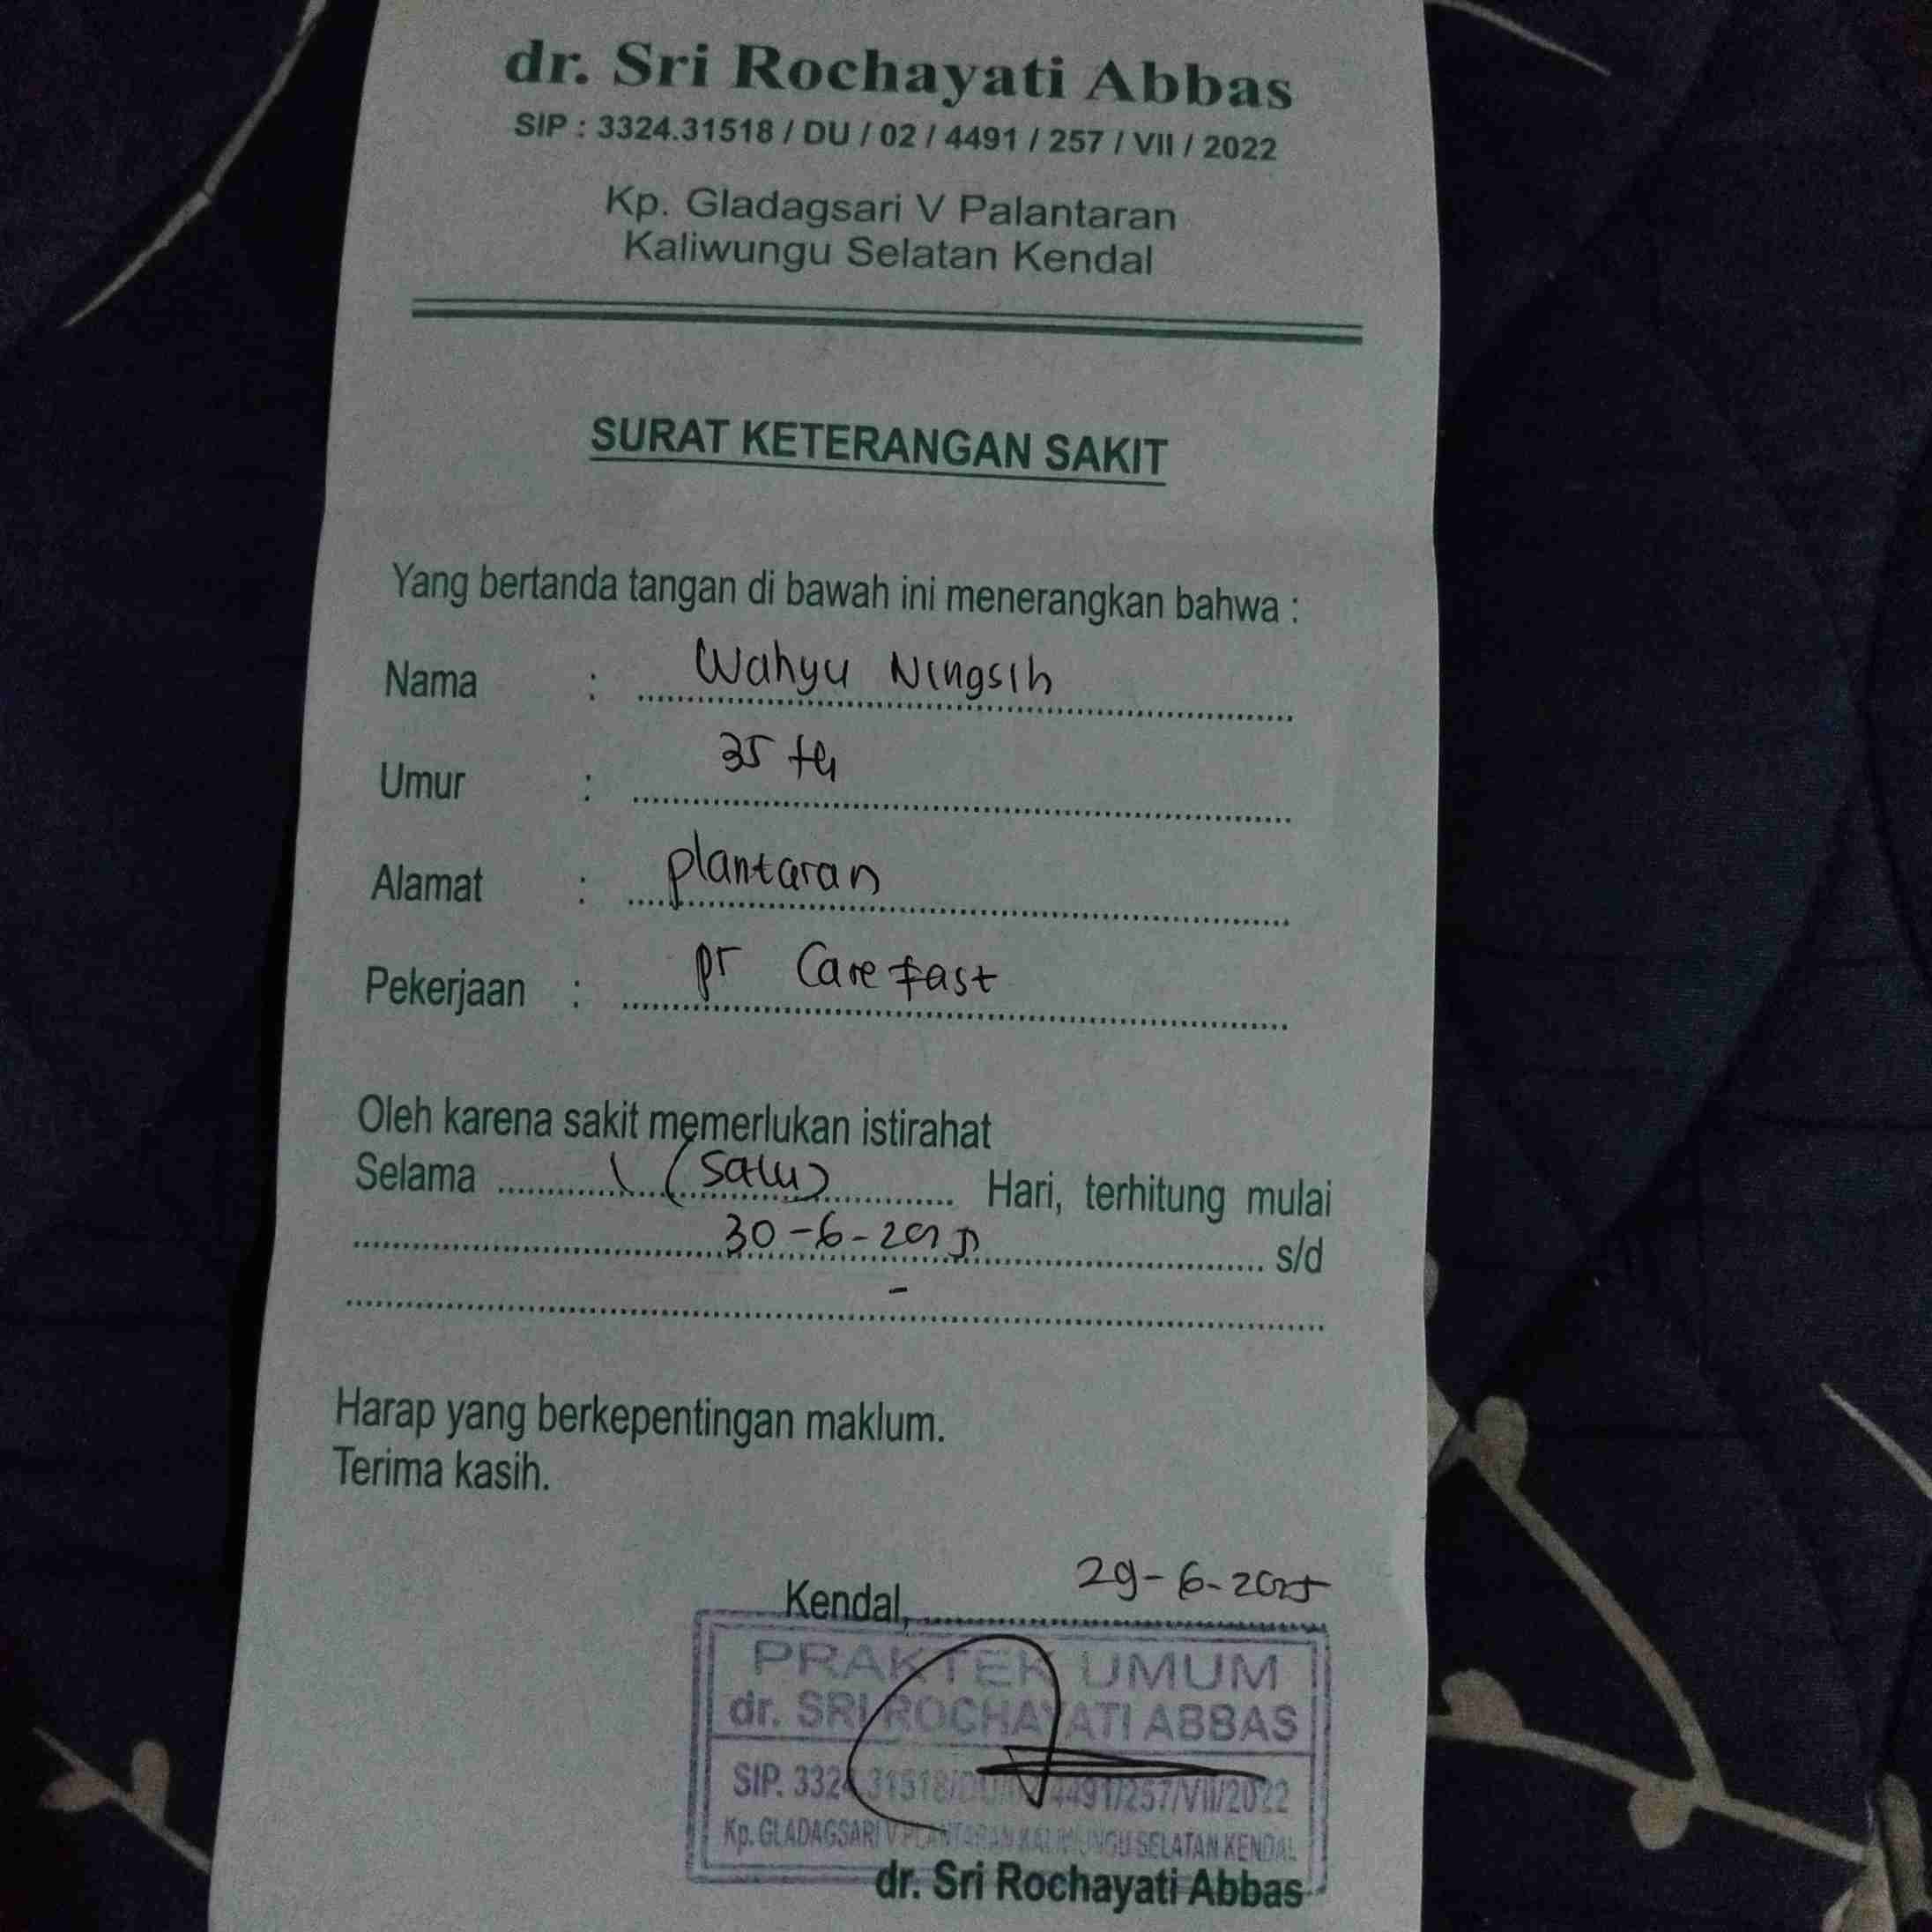 dr. Sri Rochayati Abbas
SIP : 3324.31518 / DU / 02 / 4491 / 257 / VII / 2022
Kp. Gladagsari V Palantaran
Kaliwungu Selatan Kendal
SURAT KETERANGAN SAKIT
Yang bertanda tangan di bawah ini menerangkan bahwa :
Nama : Wahyu Ningsih
Umur : 35 th
Alamat : plantaran
Pekerjaan : pT Care fast
Oleh karena sakit memerlukan istirahat
Selama 1 (satu) Hari, terhitung mulai
30-6-2025 s/d
-
Harap yang berkepentingan maklum.
Terima kasih.
Kendal, 29-6-2025
PRAKTEK UMUM
dr. SRI ROCHAYATI ABBAS
SIP. 3324.31518/DU/02/4491/257/VII/2022
Kp. GLADAGSARI V PLANTARAN KALIWUNGU SELATAN KENDAL
dr. Sri Rochayati Abbas